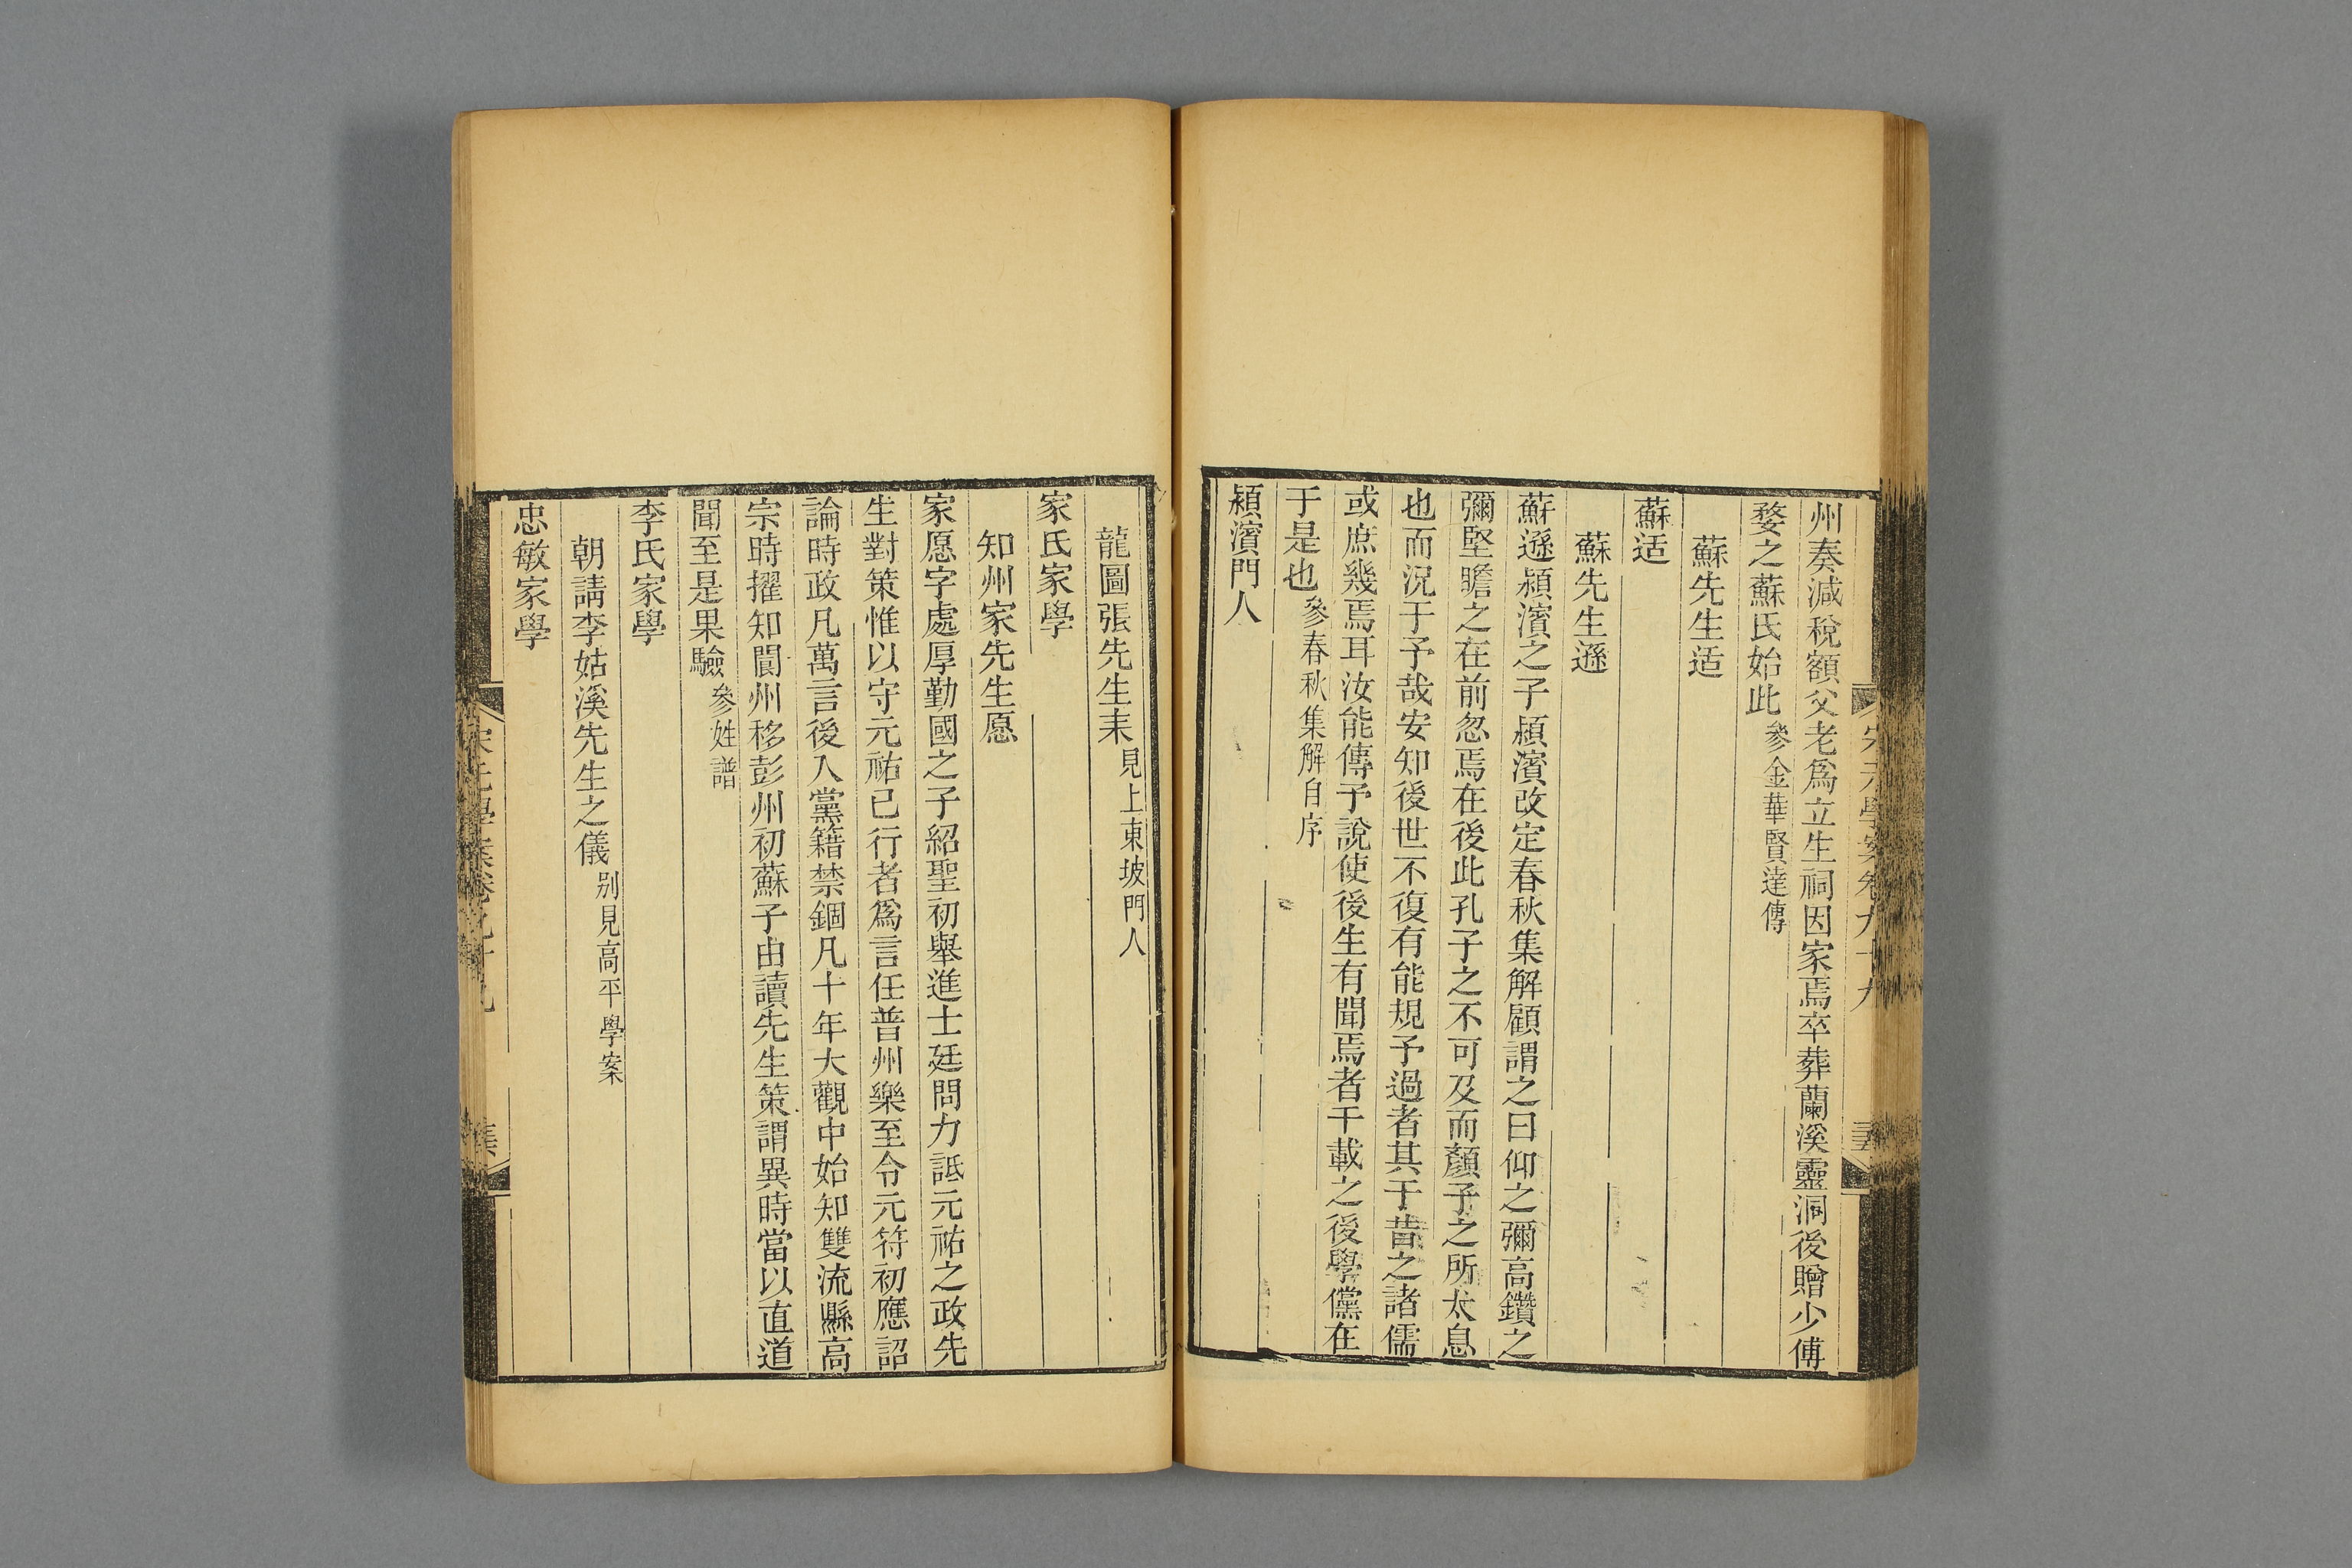 州奏減稅額父老爲立生祠因家焉卒葬蘭溪靈洞後贈少傅
婺之蘇氏始此參金華賢達傳
蘇先生适
蘇适
蘇先生遜
蘇遜潁濱之子潁濱改定春秋集解顧謂之曰仰之彌高鑽之
彌堅瞻之在前忽焉在後此孔子之不可及而顏子之所太息
也而況于予哉安知後世不復有能規予過者其于昔之諸儒
或庶幾焉耳汝能傳予說使後生有聞焉者千載之後學儻在
于是也參春秋集解自序
潁濱門人
龍圖張先生耒見上東坡門人
家氏家學
知州家先生愿
家愿字處厚勤國之子紹聖初舉進士廷問力詆元祐之政先
生對策惟以守元祐已行者爲言任普州樂至令元符初應詔
論時政凡萬言後入黨籍禁錮凡十年大觀中始知雙流縣高
宗時擢知閬州移彭州初蘇子由讀先生策謂異時當以直道
聞至是果驗參姓譜
李氏家學
朝請李姑溪先生之儀別見高平學案
忠敏家學